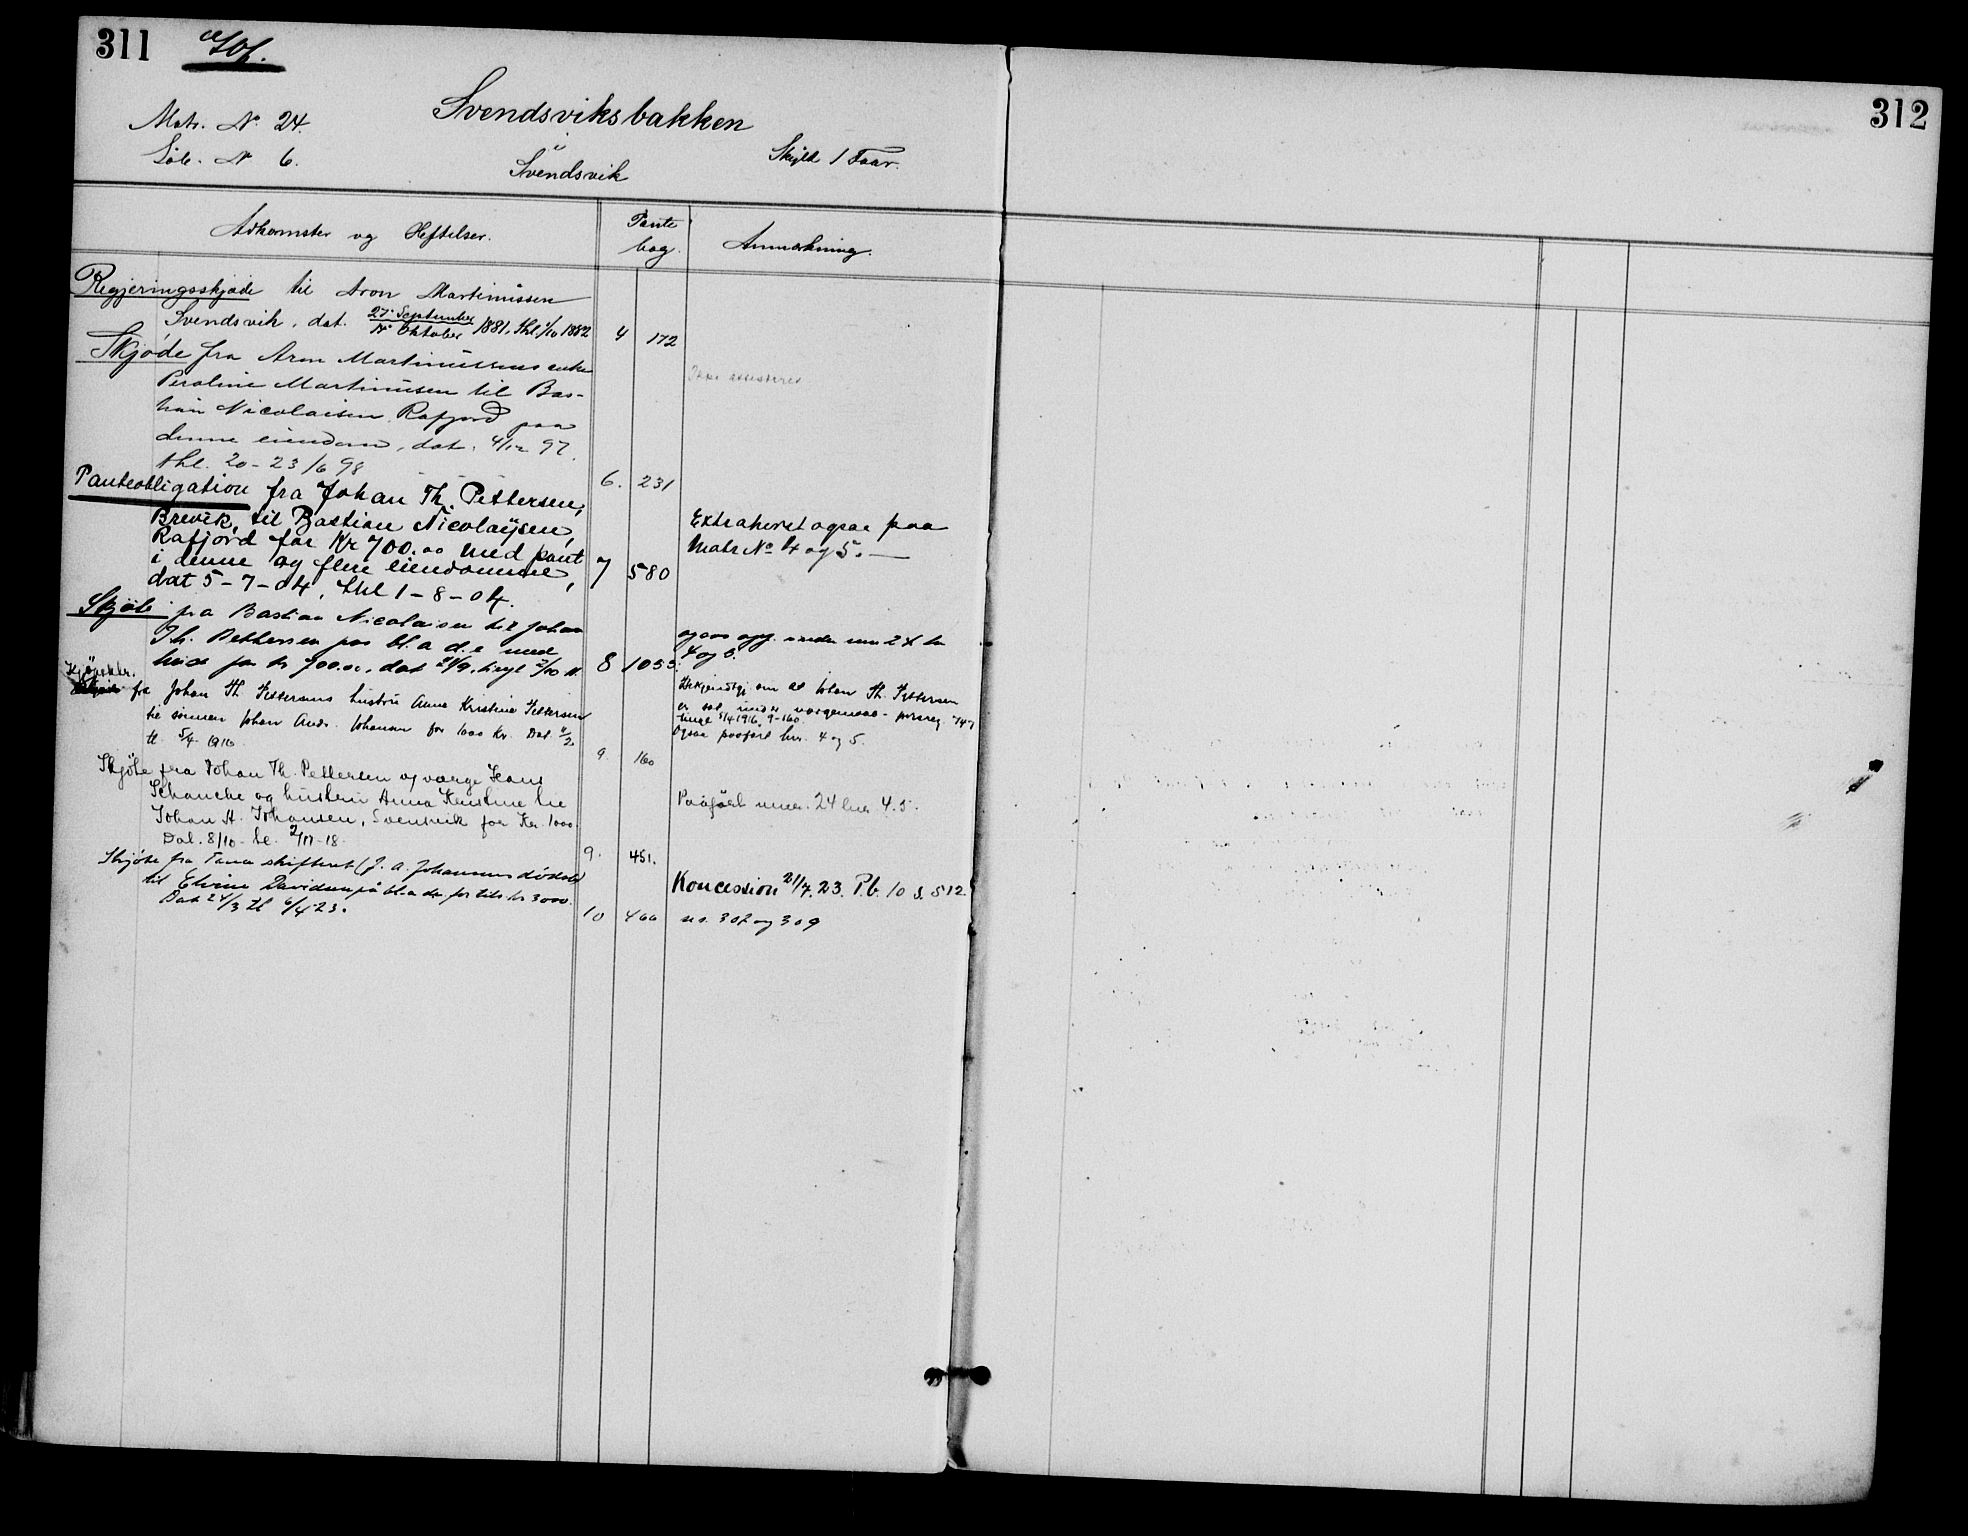 311
312
Svendsviksbakken
Matr. No 24.
Löb. No 6.
Svendsvik
Skyld 1 Faar.
Adkomster og Heftelser.
Pante
bog.
Anmærkning.
Regjeringsskjøde til Aron Martinissen
Svendsvik, dat. 27. September
Oktober 1881, thl. 1/10 1882
4 172
Skjøde fra Aron Martinussens enke
Peroline Martinusen til Bas-
tian Nicolaisen Rafjord paa
denne eiendom, dat. 4/12 97.
thl. 20-23/6 98
6. 231
Ikke
Panteobligation fra Johan Th. Pettersen,
Brevik, til Bastian Nicolaysen,
Rafjord for Kr 700.00 med pant
i denne og flere eiendomme,
dat 5-7-04, thl 1-8-04.
7 580
Extraheret ogsaa paa
Matr No 4 og 5.
Skjöte fra Bastian Nicolaisen til Johan
Th. Pettersen paa bl. a d. e med
huse for kr 700.00, dat
8 1055.
ogsaa under mnr 24 br
4 og 5.
Kjöpektr.
fra Johan Th. Pettersens hustru Anna Kristine Pettersen
til sönnen Johan Andr. Johansen for 1000 Kr. Dat.
tl. 5/4 1916
9. 160
Bekjendtgj om at Johan Th. Pettersen
er sat under værgemaal - 
tingl 5/4 1916. 9-160.
Ogsaa paaført bnr. 4 og 5.
Skjöte fra Johan Th. Pettersen og værge Hans
Schanche og hustru Anna Kristine til
Johan A. Johansen, Svensvik for Kr. 1000.
Dat. 8/10 - tl. 2/11-18.
9. 451.
Paaført mnr. 24 bnr 4. 5.
Skjöte fra Tana skifteret (J. A. Johansens dödsbo)
til Elvine Davidsen på bl a de. for tils kr 3000.
Dat 24/3 tl 6/4 23.
10 466
Koncession 21/7. 23. P.b. 10 S. 512
no. 307 og 309